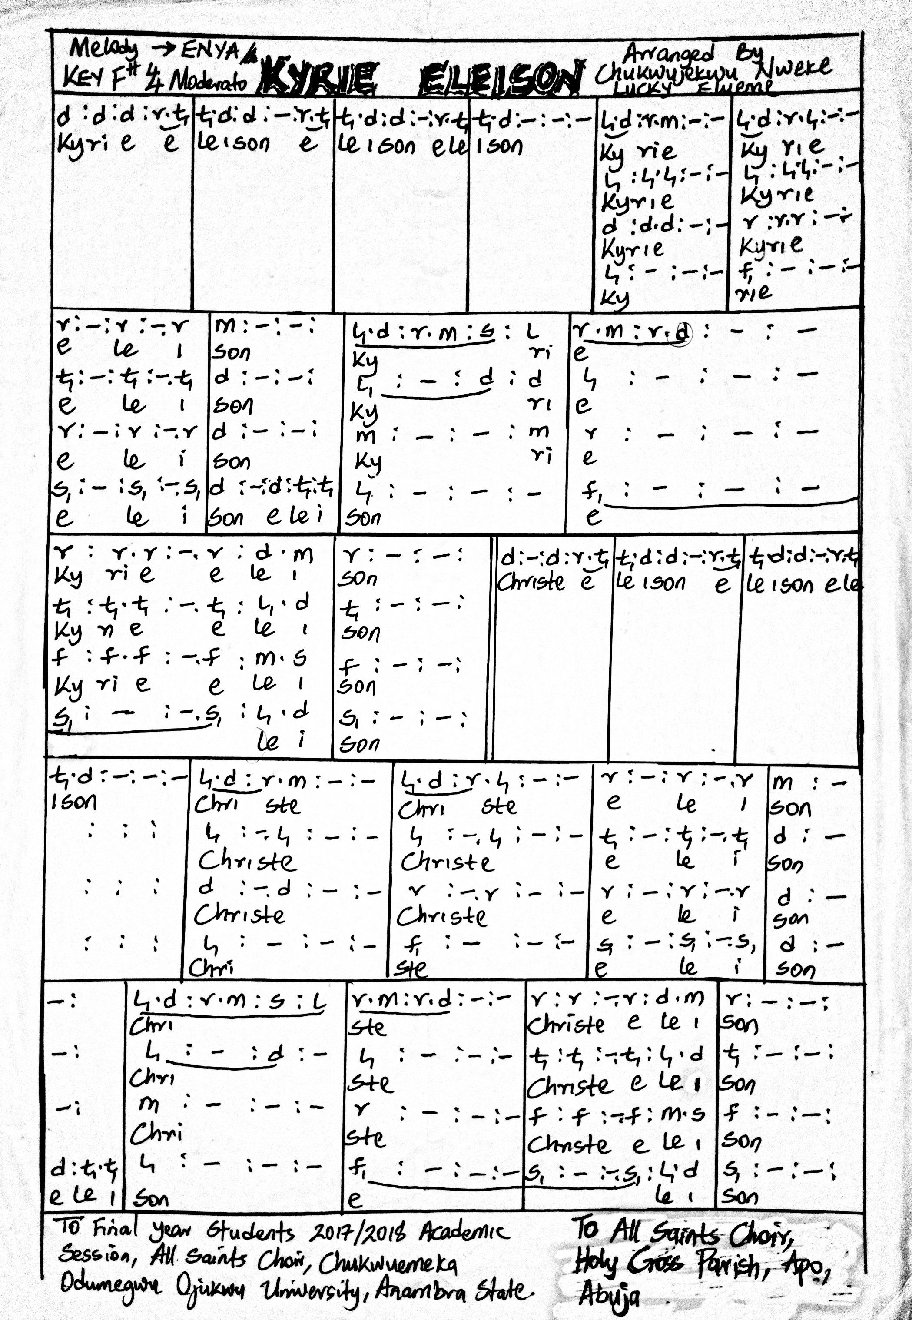 Melody → ENYA
KEY F# 4/4 Moderato
KYRIE ELEISON
Arranged By
Chukwujekwu Nweke
Lucky Elueme
d :d:d:r.t, | t,.d:d:-:r.t, | t,.d:d:-:r.t, | t,.d:-:-:- | l,.d:r.m:-:- | l,.d:r.l,:-:-
Kyri e e | leison e | leison ele | ison | Ky rie | Ky rie
l, :l,.l,:-:- | l, :l,.l,:-:-
Kyrie | Kyrie
d :d.d:-:- | r :r.r:-:-
Kyrie | Kyrie
l, :-:-:- | f, :-:-:-
Ky | rie
r:-:r:-.r | m:-:-: | l,.d:r.m:s:l | r.m:r.d:-:-
e le i | son | Ky ri | e
t,:-:t,:-.t, | d:-:-: | l,:-:d:d | l,:-:-:-
e le i | son | Ky ri | e
r:-:r:-.r | d:-:-: | m:-:-:m | r:-:-:-
e le i | son | Ky ri | e
s,:-:s,:-.s, | d:-:d:t,.t, | l,:-:-:- | f,:-:-:-
e le i | son e le i | son | e
r : r.r:-.r:d.m | r:-:-: | d:-:d:r.t, | t,.d:d:-:r.t, | t,.d:d:-:r.t,
Ky rie e le i | son | Christe e | leison e | leison ele
t, :t,.t,:-.t,:l,.d | t,:-:-:
Ky rie e le i | son
f :f.f:-.f:m.s | f:-:-:
Ky rie e le i | son
s,:-:-.s,:l,.d | s,:-:-:
le i | son
t,.d:-:-:- | l,.d:r.m:-:- | l,.d:r.l,:-:- | r:-:r:-.r | m:-
ison | Chri ste | Chri ste | e le i | son
: : : | l, :-.l,:-:- | l, :-.l,:-:- | t,:-:t,:-.t, | d:-
Christe | Christe | e le i | son
: : : | d :-.d:-:- | r :-.r:-:- | r:-:r:-.r | d:-
Christe | Christe | e le i | son
: : : | l, :-:-:- | f, :-:-:- | s,:-:s,:-.s, | d:-
Chri | ste | e le i | son
-: | l,.d:r.m:s:l | r.m:r.d:-:- | r:r:-.r:d.m | r:-:-:
Chri | ste | Christe e le i | son
-: | l,:-:d:- | l,:-:-:- | t,:t,:-.t,:l,.d | t,:-:-:
Chri | ste | Christe e le i | son
-: | m:-:-:- | r:-:-:- | f:f:-.f:m.s | f:-:-:
Chri | ste | Christe e le i | son
d:t,.t, | l,:-:-:- | f,:-:-:- | s,:-:-.s,:l,.d | s,:-:-:
e le i | son | e | le i | son
To Final Year Students 2017/2018 Academic
Session, All Saints Choir, Chukwuemeka
Odumegwu Ojukwu University, Anambra State.
To All Saints Choir,
Holy Cross Parish, Apo,
Abuja